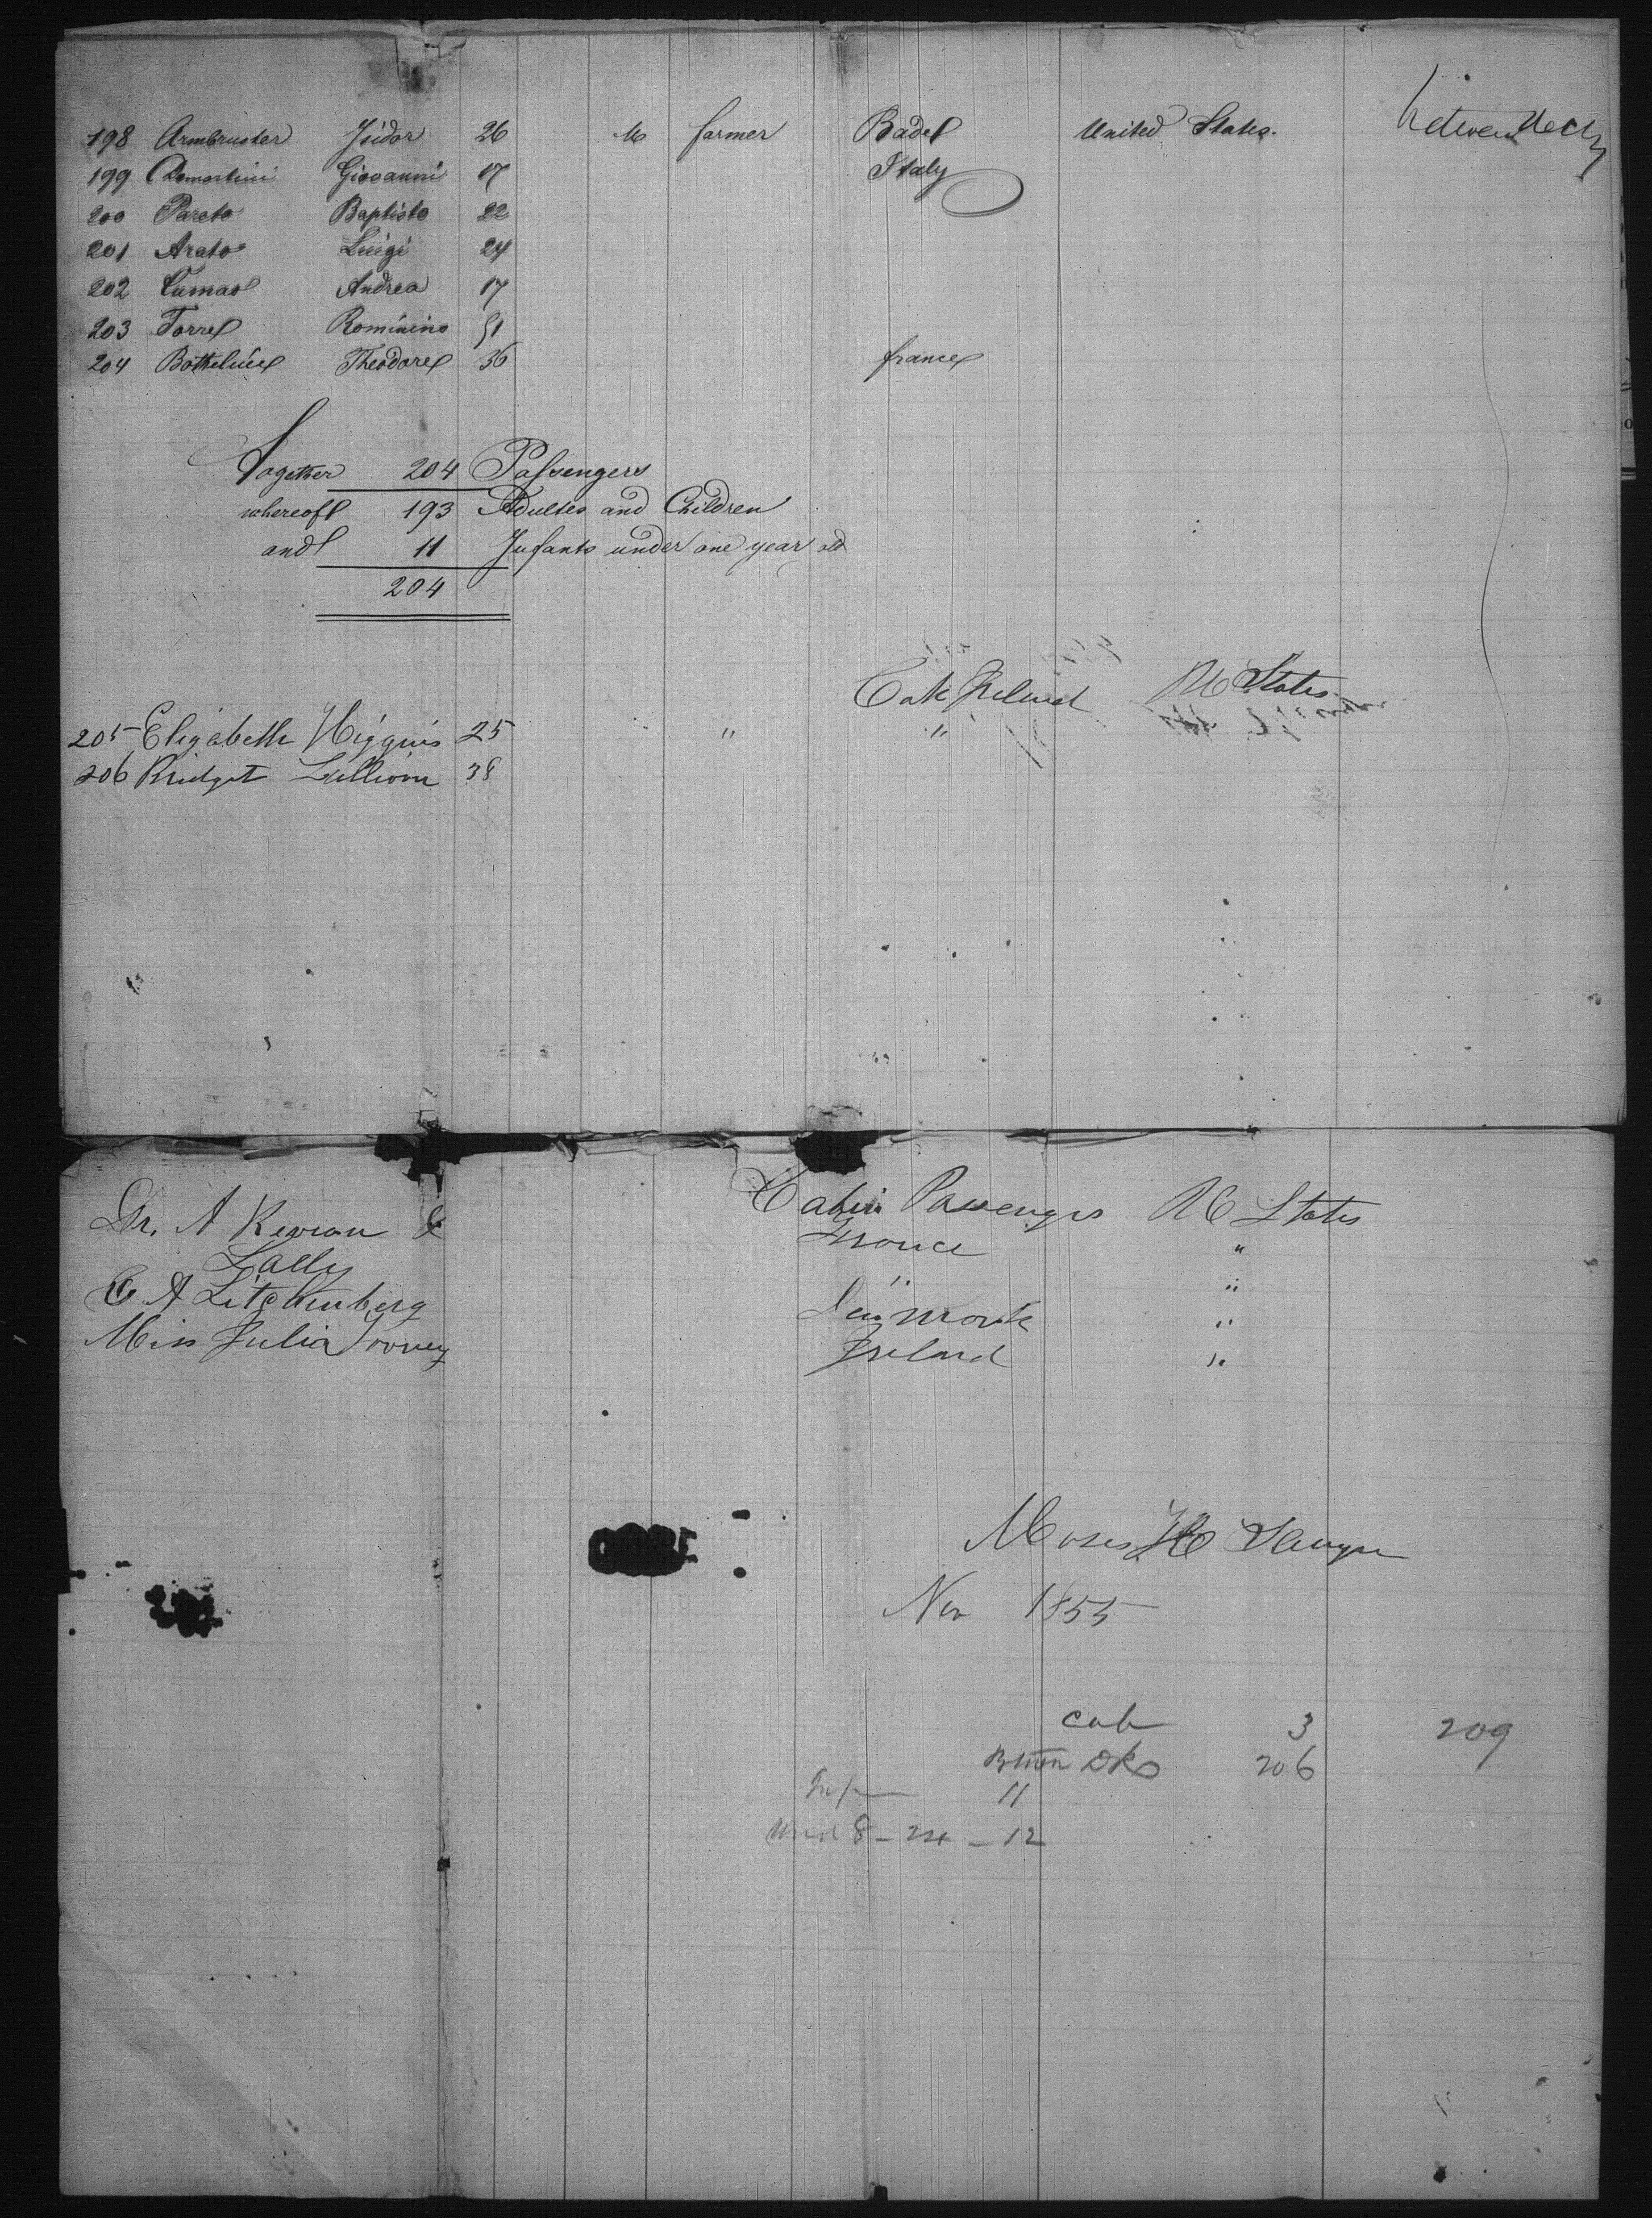 198 Armbruster Isidor 26 M farmer Baden United States. between decks
199 Demartini Giovanni 17 Italy
200 Pareto Baptisto 22
201 Arato Luigi 24
202 Andrea 17
203 Torre 51
204 Theodore 36 france
Together 204 Passengers
whereof 193 Adultes and Children
and 11 Infants under one year old
204
Ireland U States
205 Elizabeth Higgins 25 " "
206 Bridget Sullivan 38
Cabin Passengers U States
Dr. A & France "
Lady " "
C A Litchenberg Denmark "
Miss Julia Ireland "
Moses H
Nov 1855
cab 3 209
Btwn Dks 206
Inf 11
8 - 24 - 12